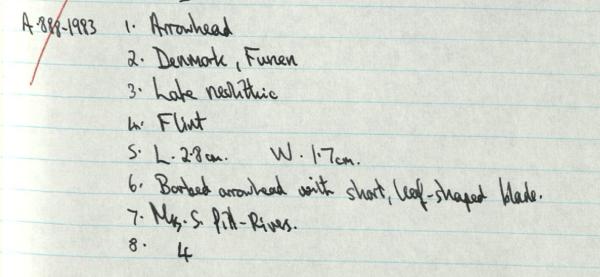 A.888-1983 1. Arrowhead
2. Denmark, Funen
3. Late neolithic
4. Flint
5. L. 2.8cm. W. 1.7cm.
6. Barbed arrowhead with short, leaf-shaped blade.
7. Mrs. S. Pitt-Rivers.
8. 4